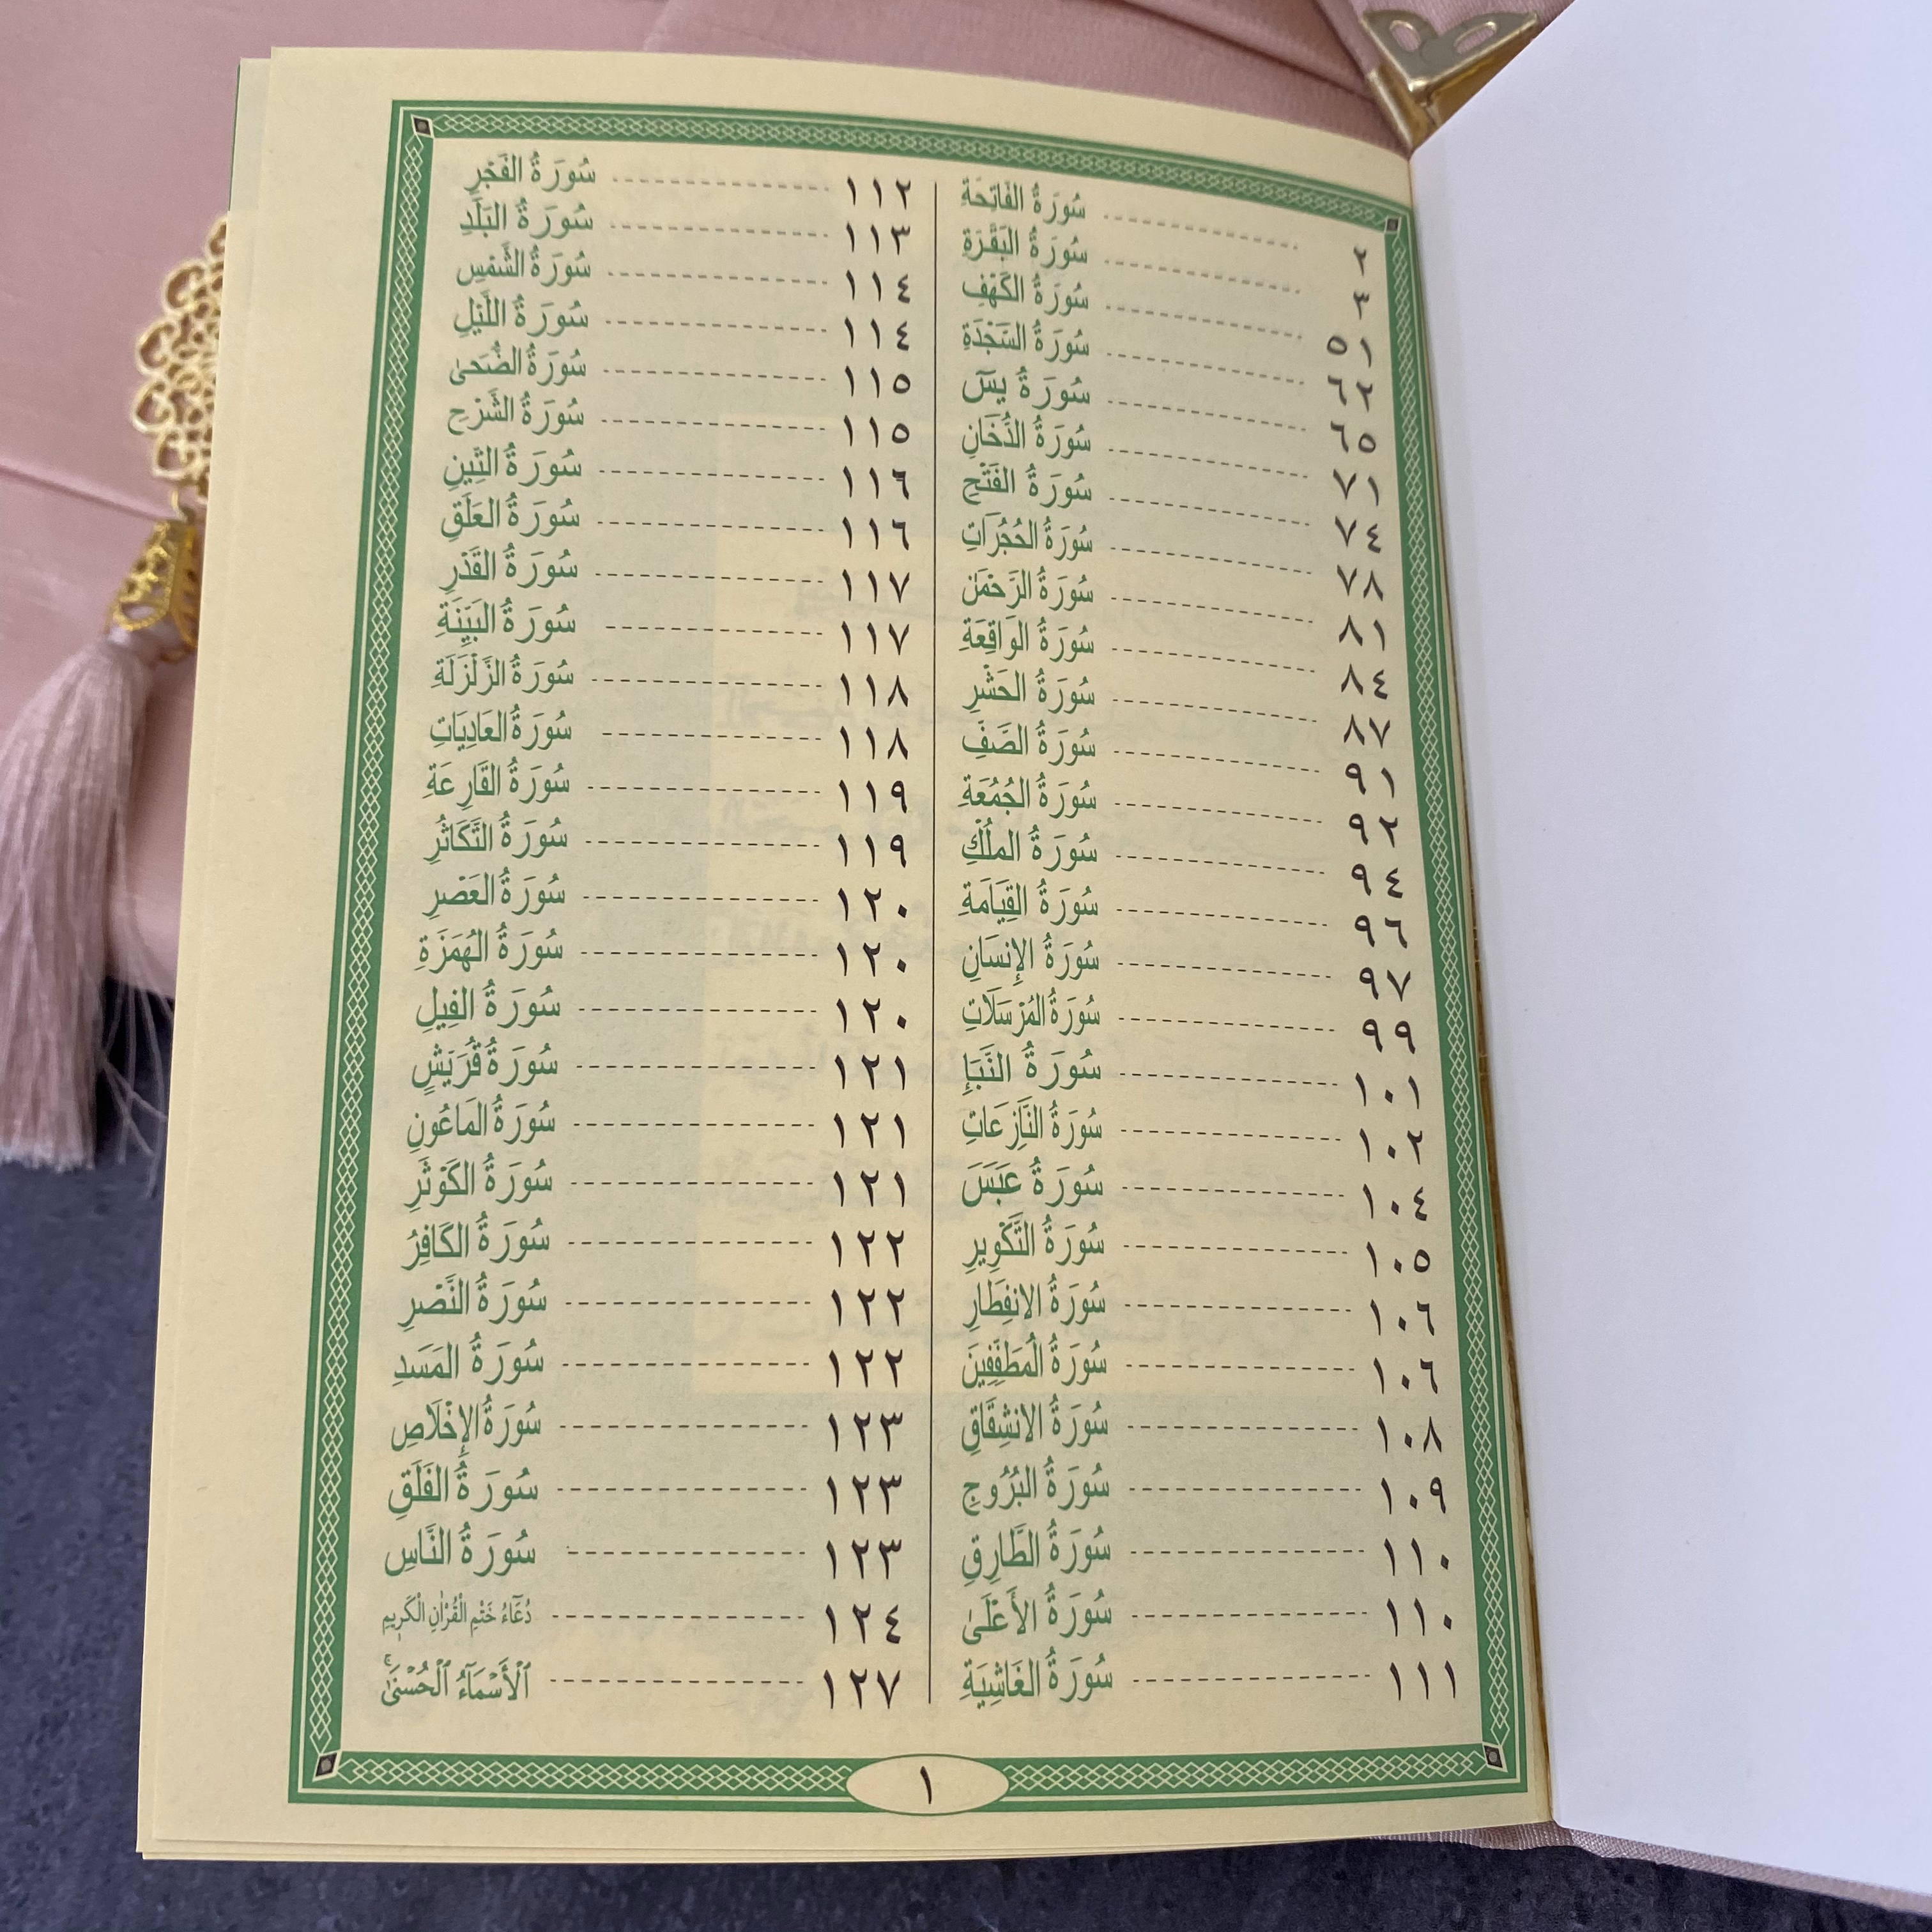 سُورَةُ الفَاتِحَة ٢
سُورَةُ البَقَرَةِ ٣
سُورَةُ الكَهْفِ ٥١
سُورَةُ السَّجْدَةِ ٦٢
سُورَةُ يسٓ ٦٥
سُورَةُ الدُّخَانِ ٧١
سُورَةُ الفَتْحِ ٧٤
سُورَةُ الحُجُرَاتِ ٧٨
سُورَةُ الرَّحْمَٰن ٨١
سُورَةُ الوَاقِعَةِ ٨٤
سُورَةُ الحَشْرِ ٨٧
سُورَةُ الصَّفِّ ٩١
سُورَةُ الجُمُعَةِ ٩٢
سُورَةُ المُلْكِ ٩٤
سُورَةُ القِيَامَةِ ٩٦
سُورَةُ الإِنسَانِ ٩٧
سُورَةُ المُرْسَلَاتِ ٩٩
سُورَةُ النَّبَإِ ١٠١
سُورَةُ النَّازِعَاتِ ١٠٢
سُورَةُ عَبَسَ ١٠٤
سُورَةُ التَّكْوِيرِ ١٠٥
سُورَةُ الانفِطَارِ ١٠٦
سُورَةُ المُطَفِّفِينَ ١٠٦
سُورَةُ الانشِقَاقِ ١٠٨
سُورَةُ البُرُوجِ ١٠٩
سُورَةُ الطَّارِقِ ١١٠
سُورَةُ الأَعْلَىٰ ١١٠
سُورَةُ الغَاشِيَةِ ١١١
سُورَةُ الفَجْرِ ١١٢
سُورَةُ البَلَدِ ١١٣
سُورَةُ الشَّمْسِ ١١٤
سُورَةُ اللَّيْلِ ١١٤
سُورَةُ الضُّحَىٰ ١١٥
سُورَةُ الشَّرْحِ ١١٥
سُورَةُ التِّينِ ١١٦
سُورَةُ العَلَقِ ١١٦
سُورَةُ القَدْرِ ١١٧
سُورَةُ البَيِّنَةِ ١١٧
سُورَةُ الزَّلْزَلَةِ ١١٨
سُورَةُ العَادِيَاتِ ١١٨
سُورَةُ القَارِعَةِ ١١٩
سُورَةُ التَّكَاثُرِ ١١٩
سُورَةُ العَصْرِ ١٢٠
سُورَةُ الهُمَزَةِ ١٢٠
سُورَةُ الفِيلِ ١٢٠
سُورَةُ قُرَيْشٍ ١٢١
سُورَةُ المَاعُونِ ١٢١
سُورَةُ الكَوْثَرِ ١٢١
سُورَةُ الكَافِرُ ١٢٢
سُورَةُ النَّصْرِ ١٢٢
سُورَةُ المَسَدِ ١٢٢
سُورَةُ الإِخْلَاصِ ١٢٣
سُورَةُ الفَلَقِ ١٢٣
سُورَةُ النَّاسِ ١٢٣
دُعَاءُ خَتْمِ الْقُرْاٰنِ الْكَرِيمِ ١٢٤
ٱلْأَسْمَآءُ ٱلْحُسْنَىٰ ١٢٧
١